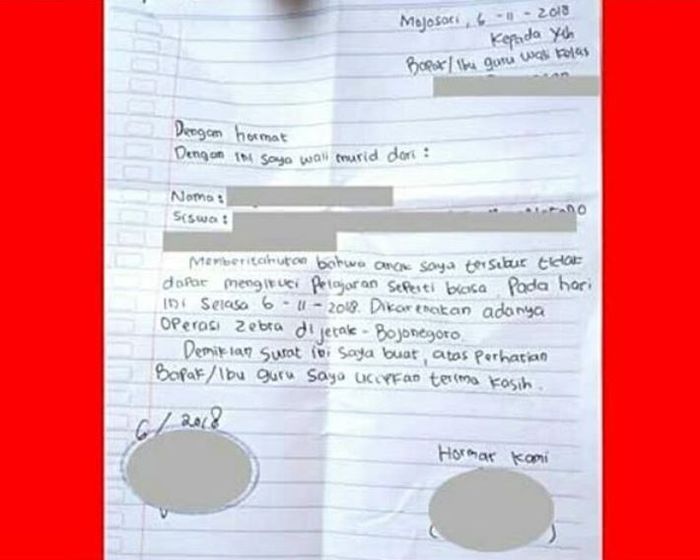 Mojosari, 6 - 11 - 2018
Kepada Yth
Bapak/Ibu guru wali kelas
Dengan hormat
Dengan ini saya wali murid dari :
Nama :
Siswa :
Memberitahukan bahwa anak saya tersibut tidak
dapat mengikuti Pelajaran seperti biasa Pada hari
ini Selasa 6 - 11 - 2018. Dikarenakan adanya
Operasi Zebra di jetak - Bojonegoro.
Demikian surat ini saya buat, atas Perhatian
Bapak/Ibu guru saya ucapkan terima kasih.
6/ 2018
Hormat Kami
( )